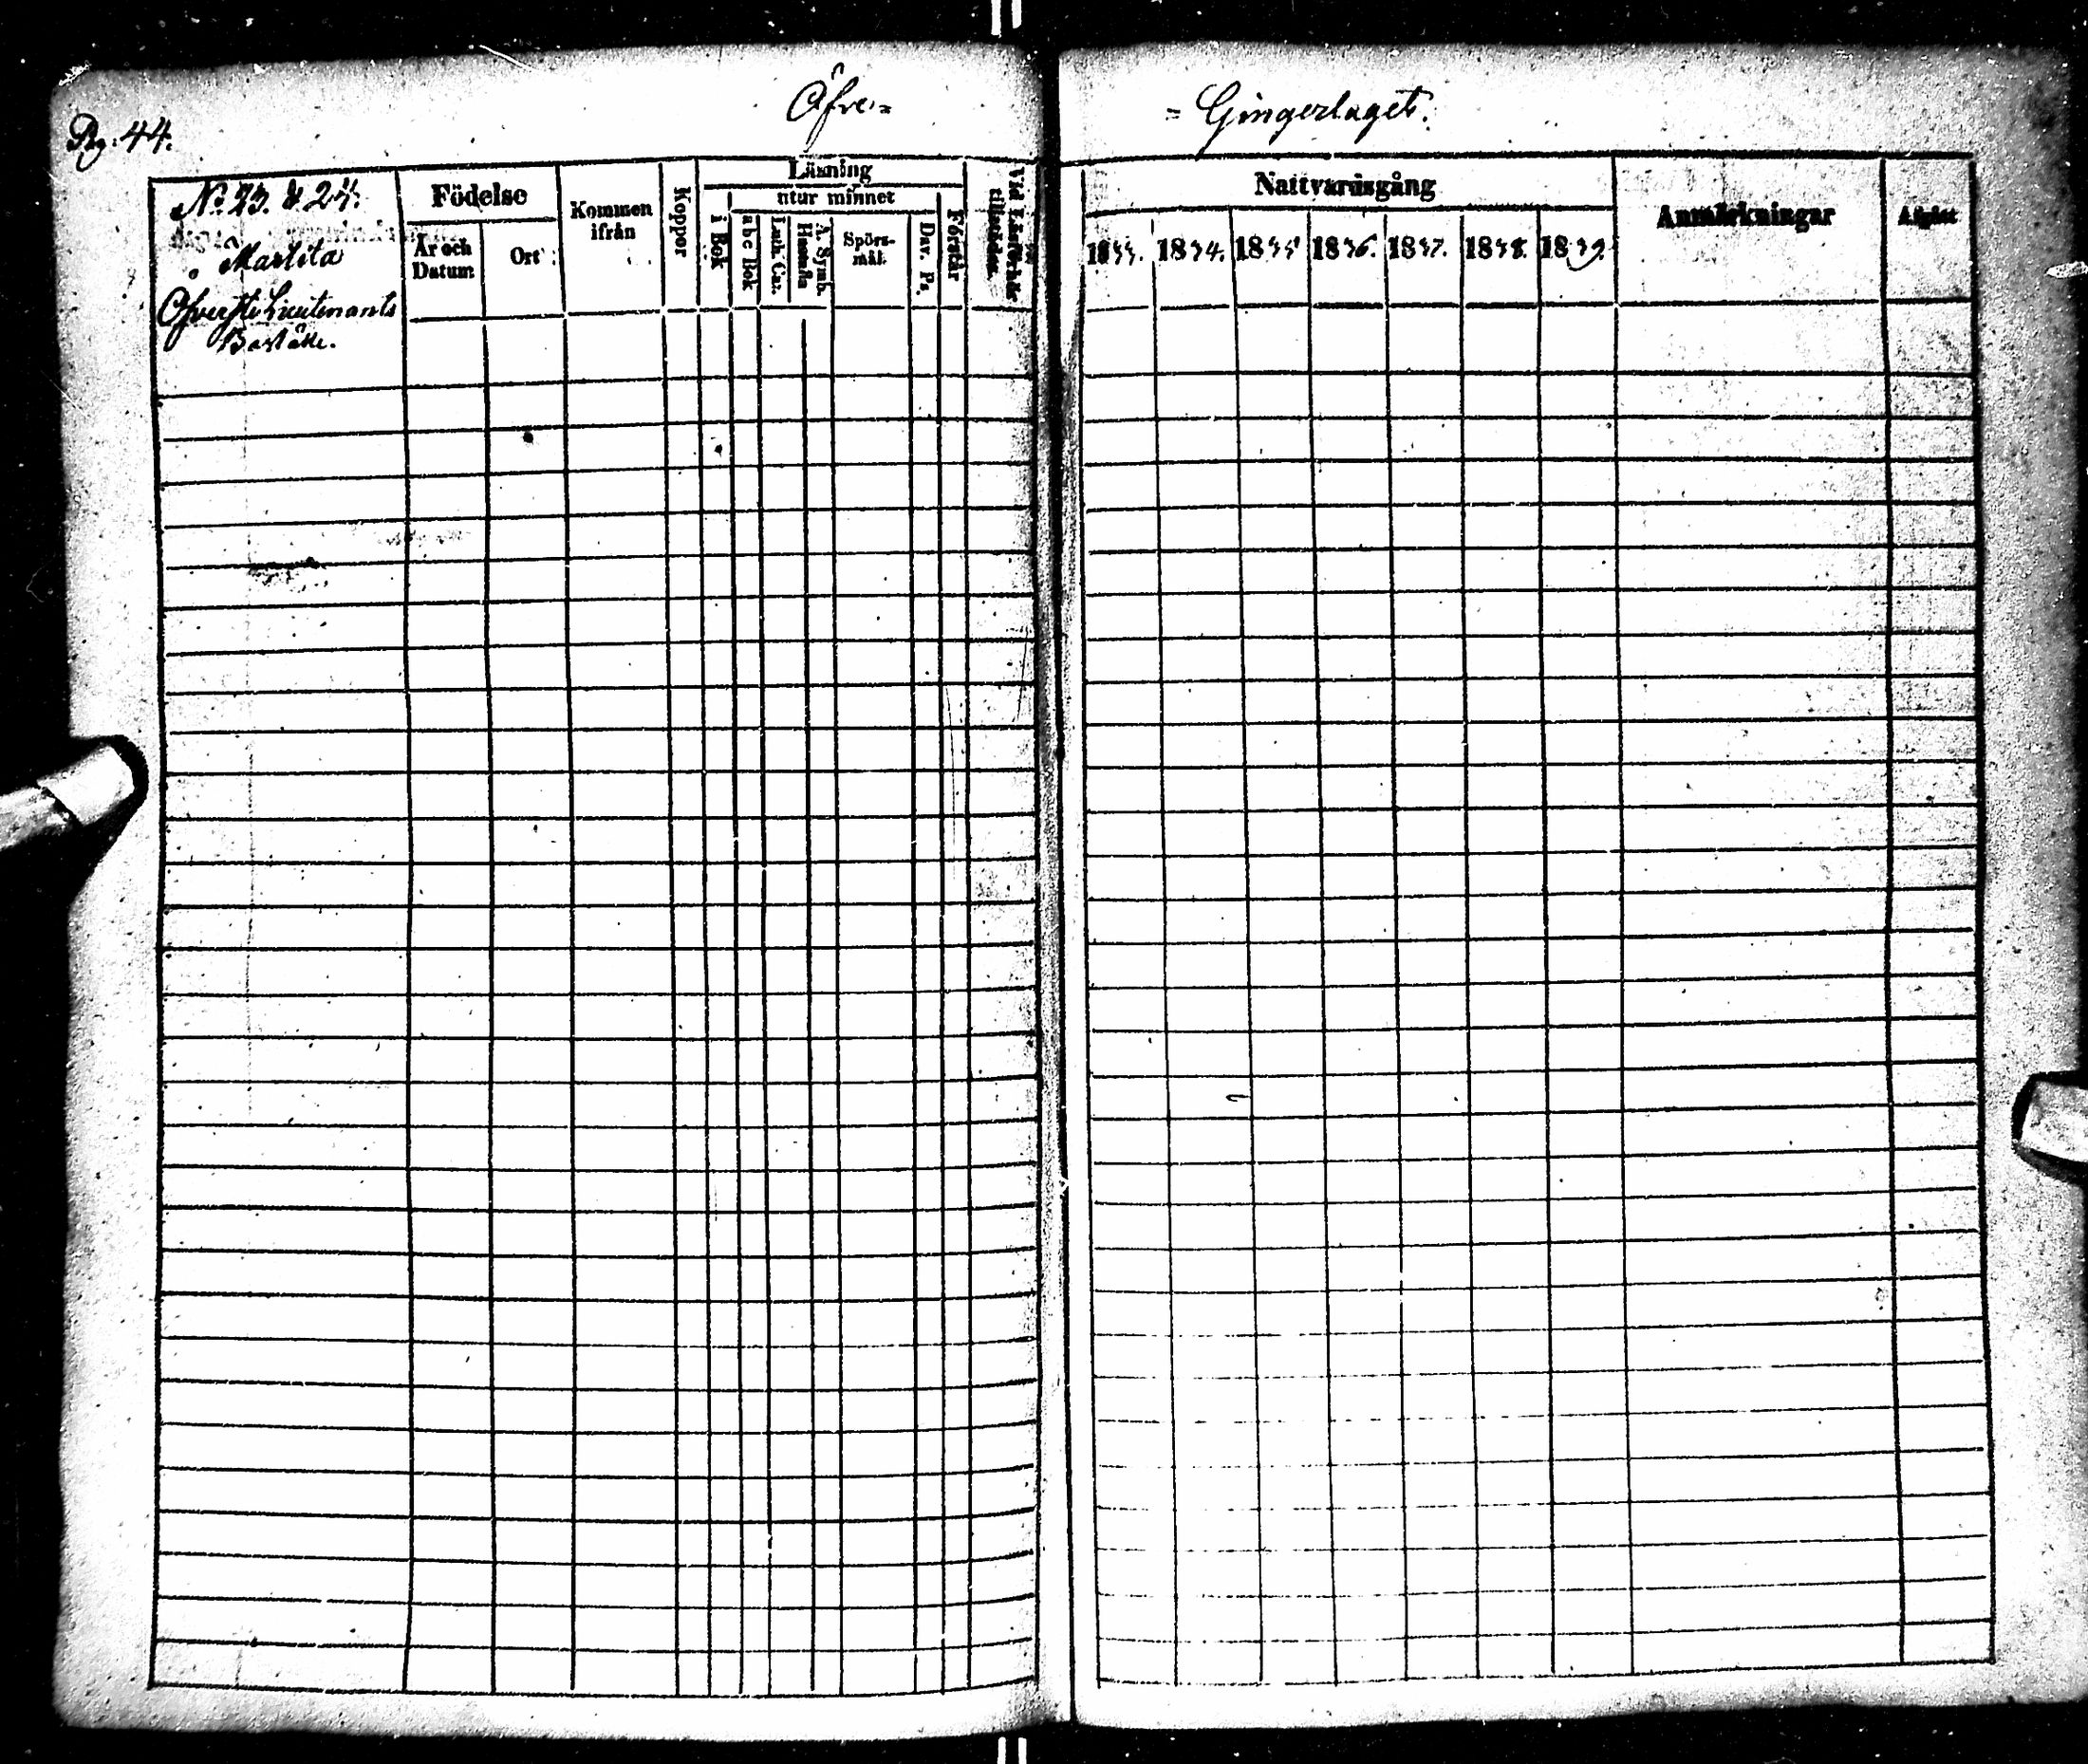 Öfre= = Gingerlaget.
Pag. 44.
No. 23. & 24.
Marlita
Öfverste Lieutenants
Boställe.
Födelse
År och Datum
Ort
Kommen ifrån
Koppor
Läsning
i Bok
utur minnet
a b c Bok
Luth. Cat.
Hustafla
A. Symb.
Spörs-mål.
Dav. Ps.
Förstår
Vid Läsförhör tillstädes.
Nattvardsgång
1833. 1834. 1835 1836. 1837. 1838. 1839.
Anmärkningar
Afgått